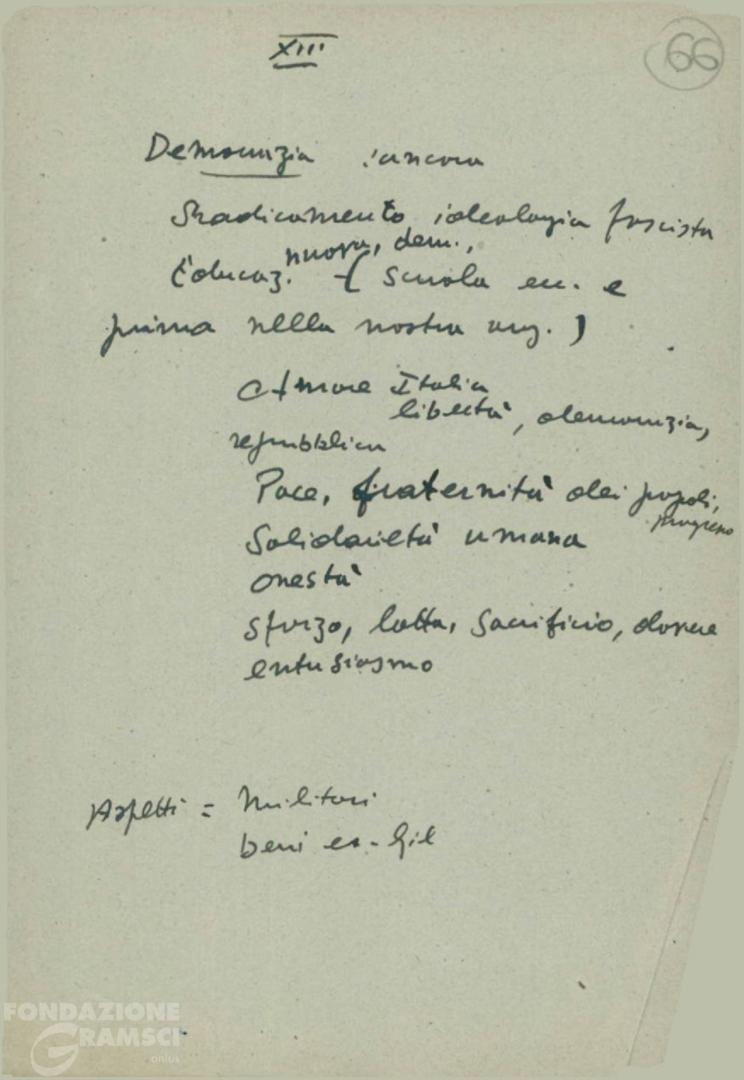 XIII
66
Democrazia : ancora
Sradicamento ideologia fascista
nuova, dem.,
Educaz. - ( Scuola ecc. e
prima nella nostra org. )
Amore Italia
libertà, democrazia,
repubblica
Pace, fraternità dei popoli,
progresso
Solidarietà umana
onestà
sforzo, lotta, sacrificio, dovere
entusiasmo
Aspetti = Militari
beni ex-Gil
FONDAZIONE
GRAMSCI
onlus